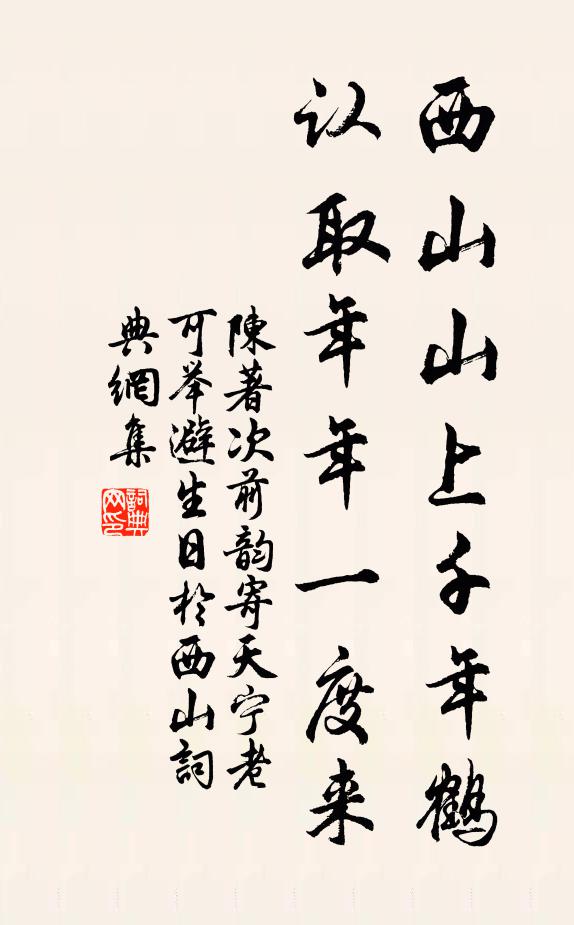 西山山上千年鶴
认取年年一度来
陳著次前韵寄天宁老
可举避生日於西山詞
典網集
詞典网印